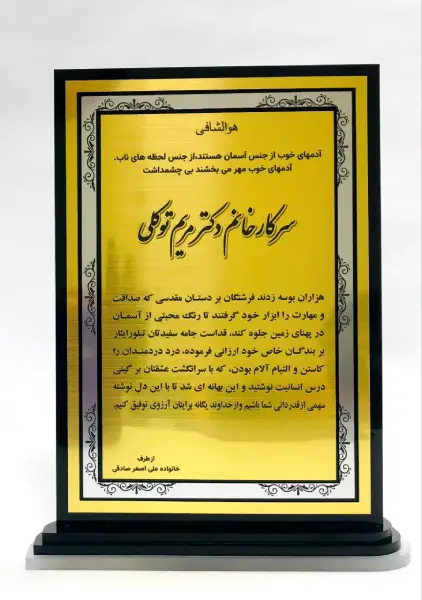 هوالشافی
آدمهای خوب از جنس آسمان هستند،از جنس لحظه های ناب.
آدمهای خوب مهر می بخشند بی چشمداشت
سرکار خانم دکتر مریم توکلی
هزاران بوسه زدند فرشتگان بر دستان مقدسی که صداقت
و مهارت را ابزار خود گرفتند تا رنگ محبتی از آسمان
در پهنای زمین جلوه کند، قداست جامه سفیدتان تبلورایثار
بر بندگان خاص خود ارزانی فرموده، درد دردمندان را
کاستن و التیام آلام بودن، که با سرانگشت عشقتان بر گیتی
درس انسانیت نوشتید و این بهانه ای شد تا با این دل نوشته
سهمی ازقدردانی شما باشیم وازخداوند یگانه برایتان آرزوی توفیق کنیم.
ازطرف
خانواده علی اصغر صادقی